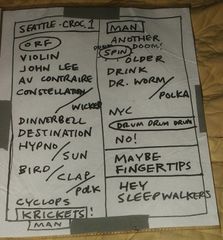 SEATTLE - CROC. 1
ORF
VIOLIN
JOHN LEE
AU CONTRAIRE
CONSTELLATION/
WICKED
DINNERBELL
DESTINATION
HYPNO/
SUN
BIRD/
CLAP/
POLK
CYCLOPS
KRICKETS!
MAN
MAN
ANOTHER
DOOM!
SPIN
OLDER
DRINK
DR. WORM/
POLKA
NYC
DRUM DRUM DRUM
NO!
MAYBE
FINGERTIPS
HEY
SLEEPWALKERS